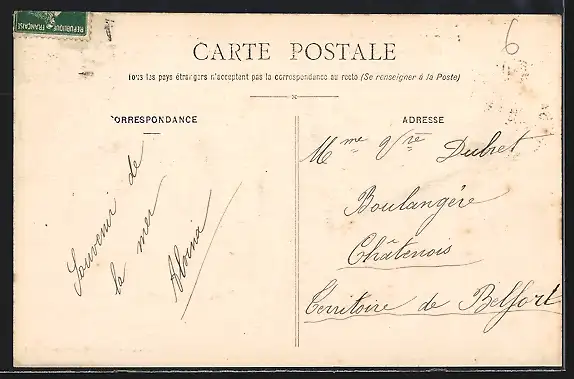 6
CARTE POSTALE
Tous les pays étrangers n'acceptent pas la correspondance au recto (Se renseigner à la Poste)
CORRESPONDANCE
ADRESSE
Souvenir de
la mer
Mme Vve Dubret
Boulangère
Châtenois
Territoire de Belfort